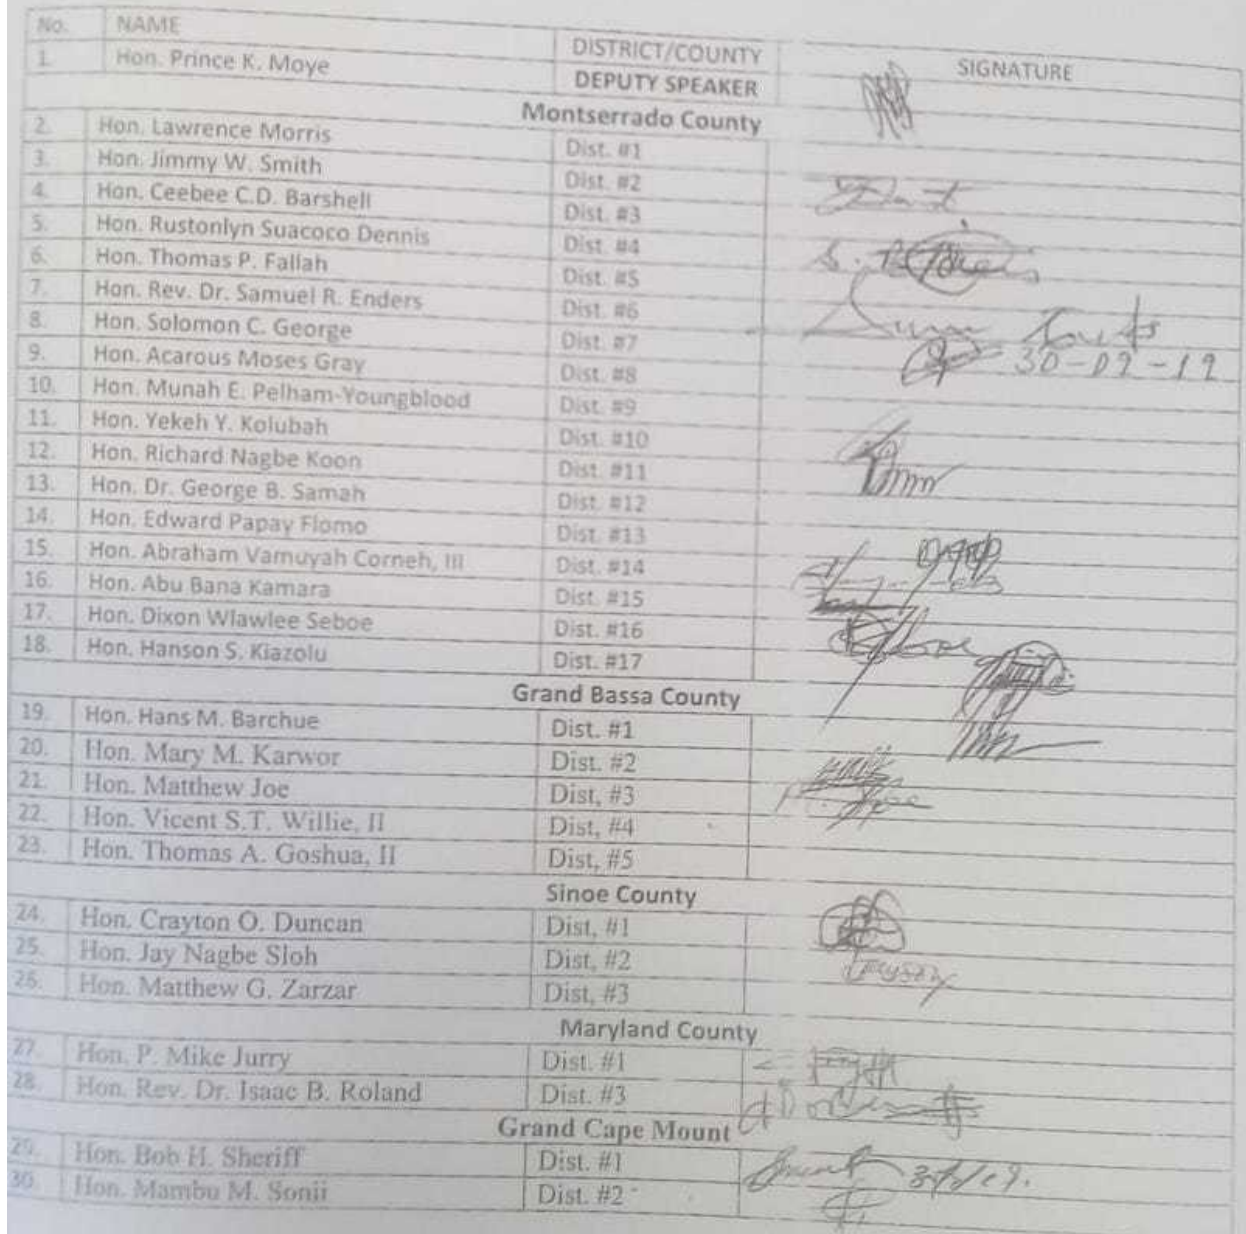 No. NAME DISTRICT/COUNTY SIGNATURE
1. Hon. Prince K. Moye DEPUTY SPEAKER
Montserrado County
2. Hon. Lawrence Morris Dist. #1
3. Hon. Jimmy W. Smith Dist. #2
4. Hon. Ceebee C.D. Barshell Dist. #3
5. Hon. Rustonlyn Suacoco Dennis Dist. #4
6. Hon. Thomas P. Fallah Dist. #5
7. Hon. Rev. Dr. Samuel R. Enders Dist. #6
8. Hon. Solomon C. George Dist. #7
9. Hon. Acarous Moses Gray Dist. #8
10. Hon. Munah E. Pelham-Youngblood Dist. #9
11. Hon. Yekeh Y. Kolubah Dist. #10
12. Hon. Richard Nagbe Koon Dist. #11
13. Hon. Dr. George B. Samah Dist. #12
14. Hon. Edward Papay Flomo Dist. #13
15. Hon. Abraham Vamuyah Corneh, III Dist. #14
16. Hon. Abu Bana Kamara Dist. #15
17. Hon. Dixon Wlawlee Seboe Dist. #16
18. Hon. Hanson S. Kiazolu Dist. #17
Grand Bassa County
19. Hon. Hans M. Barchue Dist. #1
20. Hon. Mary M. Karwor Dist. #2
21. Hon. Matthew Joe Dist, #3
22. Hon. Vicent S.T. Willie, II Dist, #4
23. Hon. Thomas A. Goshua, II Dist, #5
Sinoe County
24. Hon. Crayton O. Duncan Dist, #1
25. Hon. Jay Nagbe Sloh Dist, #2
26. Hon. Matthew G. Zarzar Dist, #3
Maryland County
27. Hon. P. Mike Jurry Dist. #1
28. Hon. Rev. Dr. Isaac B. Roland Dist. #3
Grand Cape Mount
29. Hon. Bob H. Sheriff Dist. #1
30. Hon. Mambu M. Sonii Dist. #2